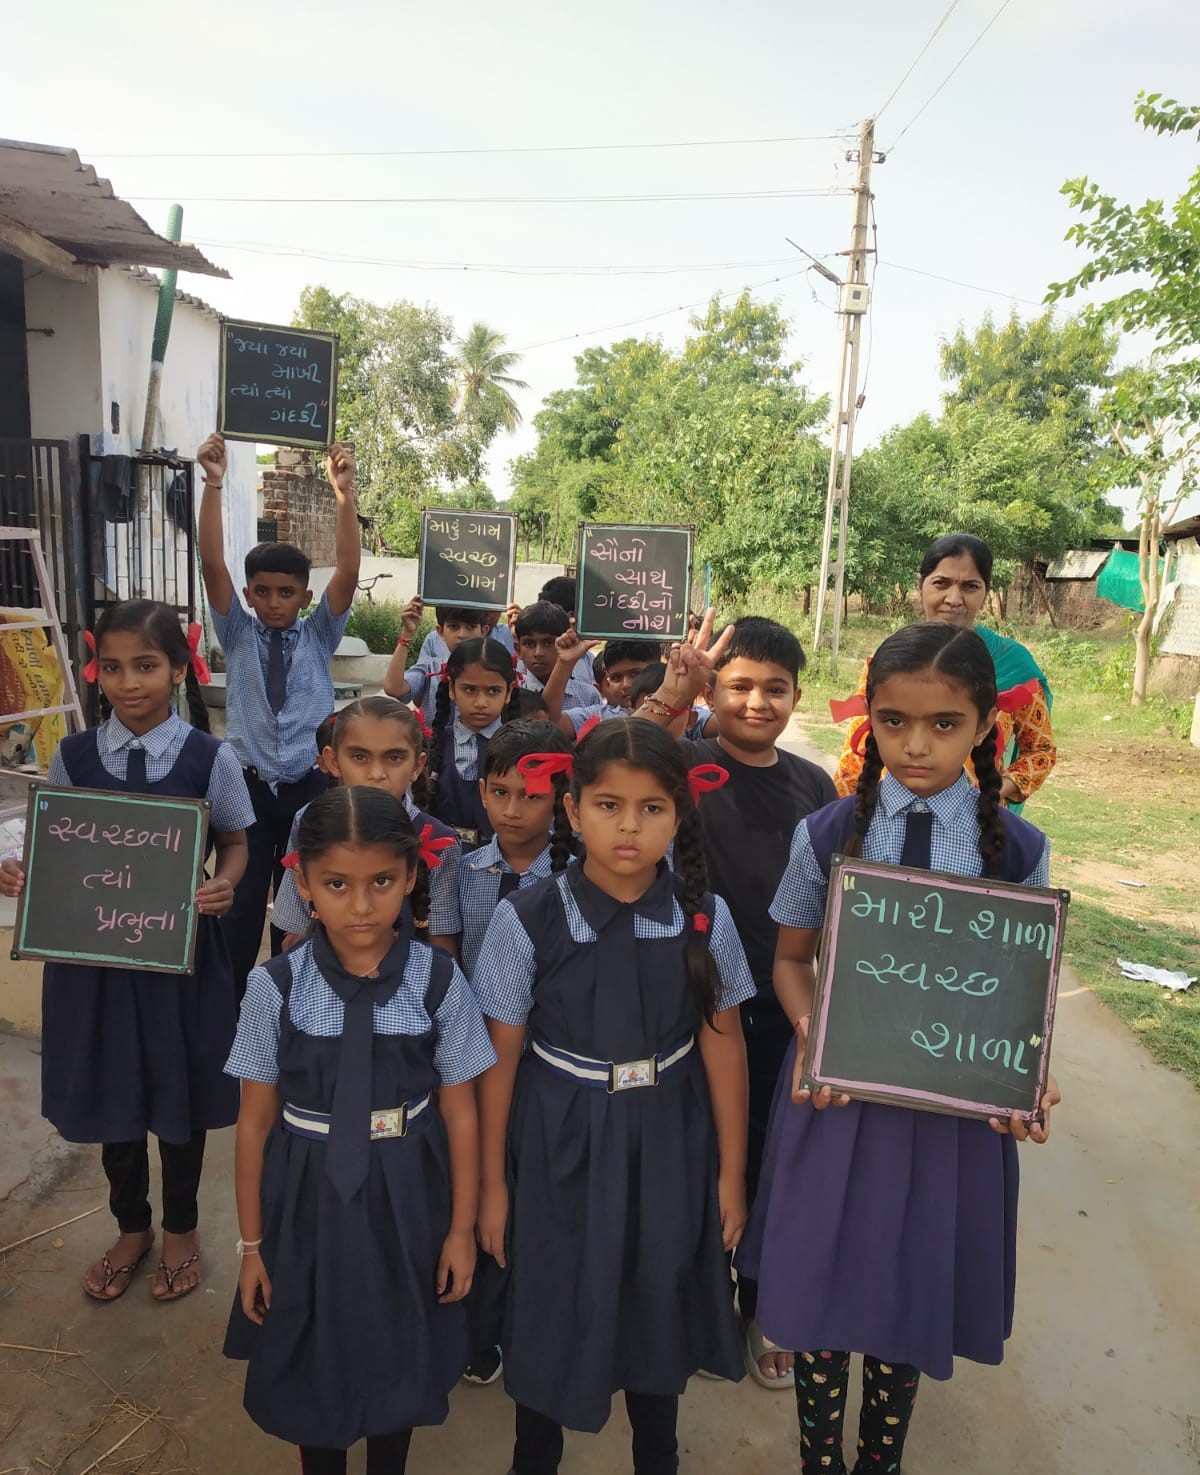 "જયાં જયાં
માખી
ત્યાં ત્યાં
ગંદકી"
"મારું ગામ
સ્વચ્છ
ગામ"
"સૌનો
સાથ
ગંદકીનો
નાશ"
"સ્વચ્છતા
ત્યાં
પ્રભુતા"
"મારી શાળા
સ્વચ્છ
શાળા"